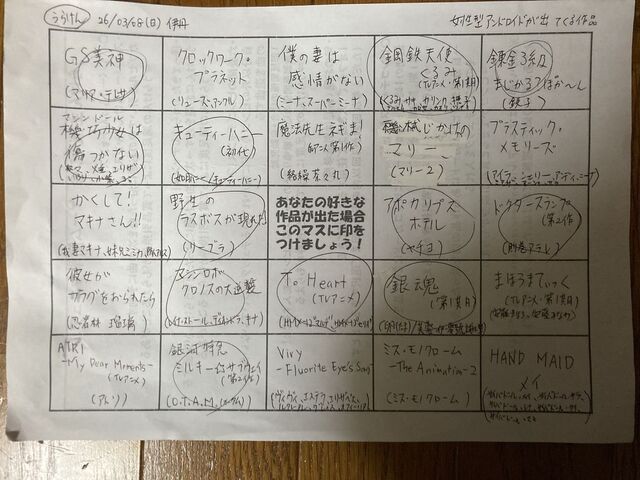 うらけん 26/03/08(日) 伊丹
女性型アンドロイドが出てくる作品
GS美神
(マリア・テレサ)
クロックワーク・
プラネット
(リューズ・アンクル)
僕の妻は
感情がない
(ミーナ、スーパーミーナ)
鋼鉄天使
くるみ
(TVアニメ・第1期)
錬金3級
まじかる?ぽか~ん
マシンドール
機巧少女は
傷つかない
キューティーハニー
(初代)
(如月ハニー/キューティーハニー)
魔法先生ネギま!
(絡繰茶々丸)
機械じかけの
マリー
(マリー2)
プラスティック・
メモリーズ
かくして!
マキナさん!!
野生の
ラスボスが現れた
(リーブラ)
あなたの好きな
作品が出た場合
このマスに印を
つけましょう!
アポカリプス
ホテル
(ヤチヨ)
ドクタースランプ
(第2作)
(則巻アラレ)
彼女が
フラグをおられたら
(忍者林 瑠璃)
クロノスの大逆襲
To Heart
(TVアニメ)
銀魂
(第1期)
まほろまてぃっく
(TVアニメ・第1期)
ATRI
-My Dear Moments-
(TVアニメ)
(アトリ)
銀河特急
ミルキー☆サブウェイ
(O.T.A.M.)
Vivy
-Fluorite Eye's Song-
ミス・モノクローム
-The Animation-2
(ミス・モノクローム)
HAND MAID
メイ